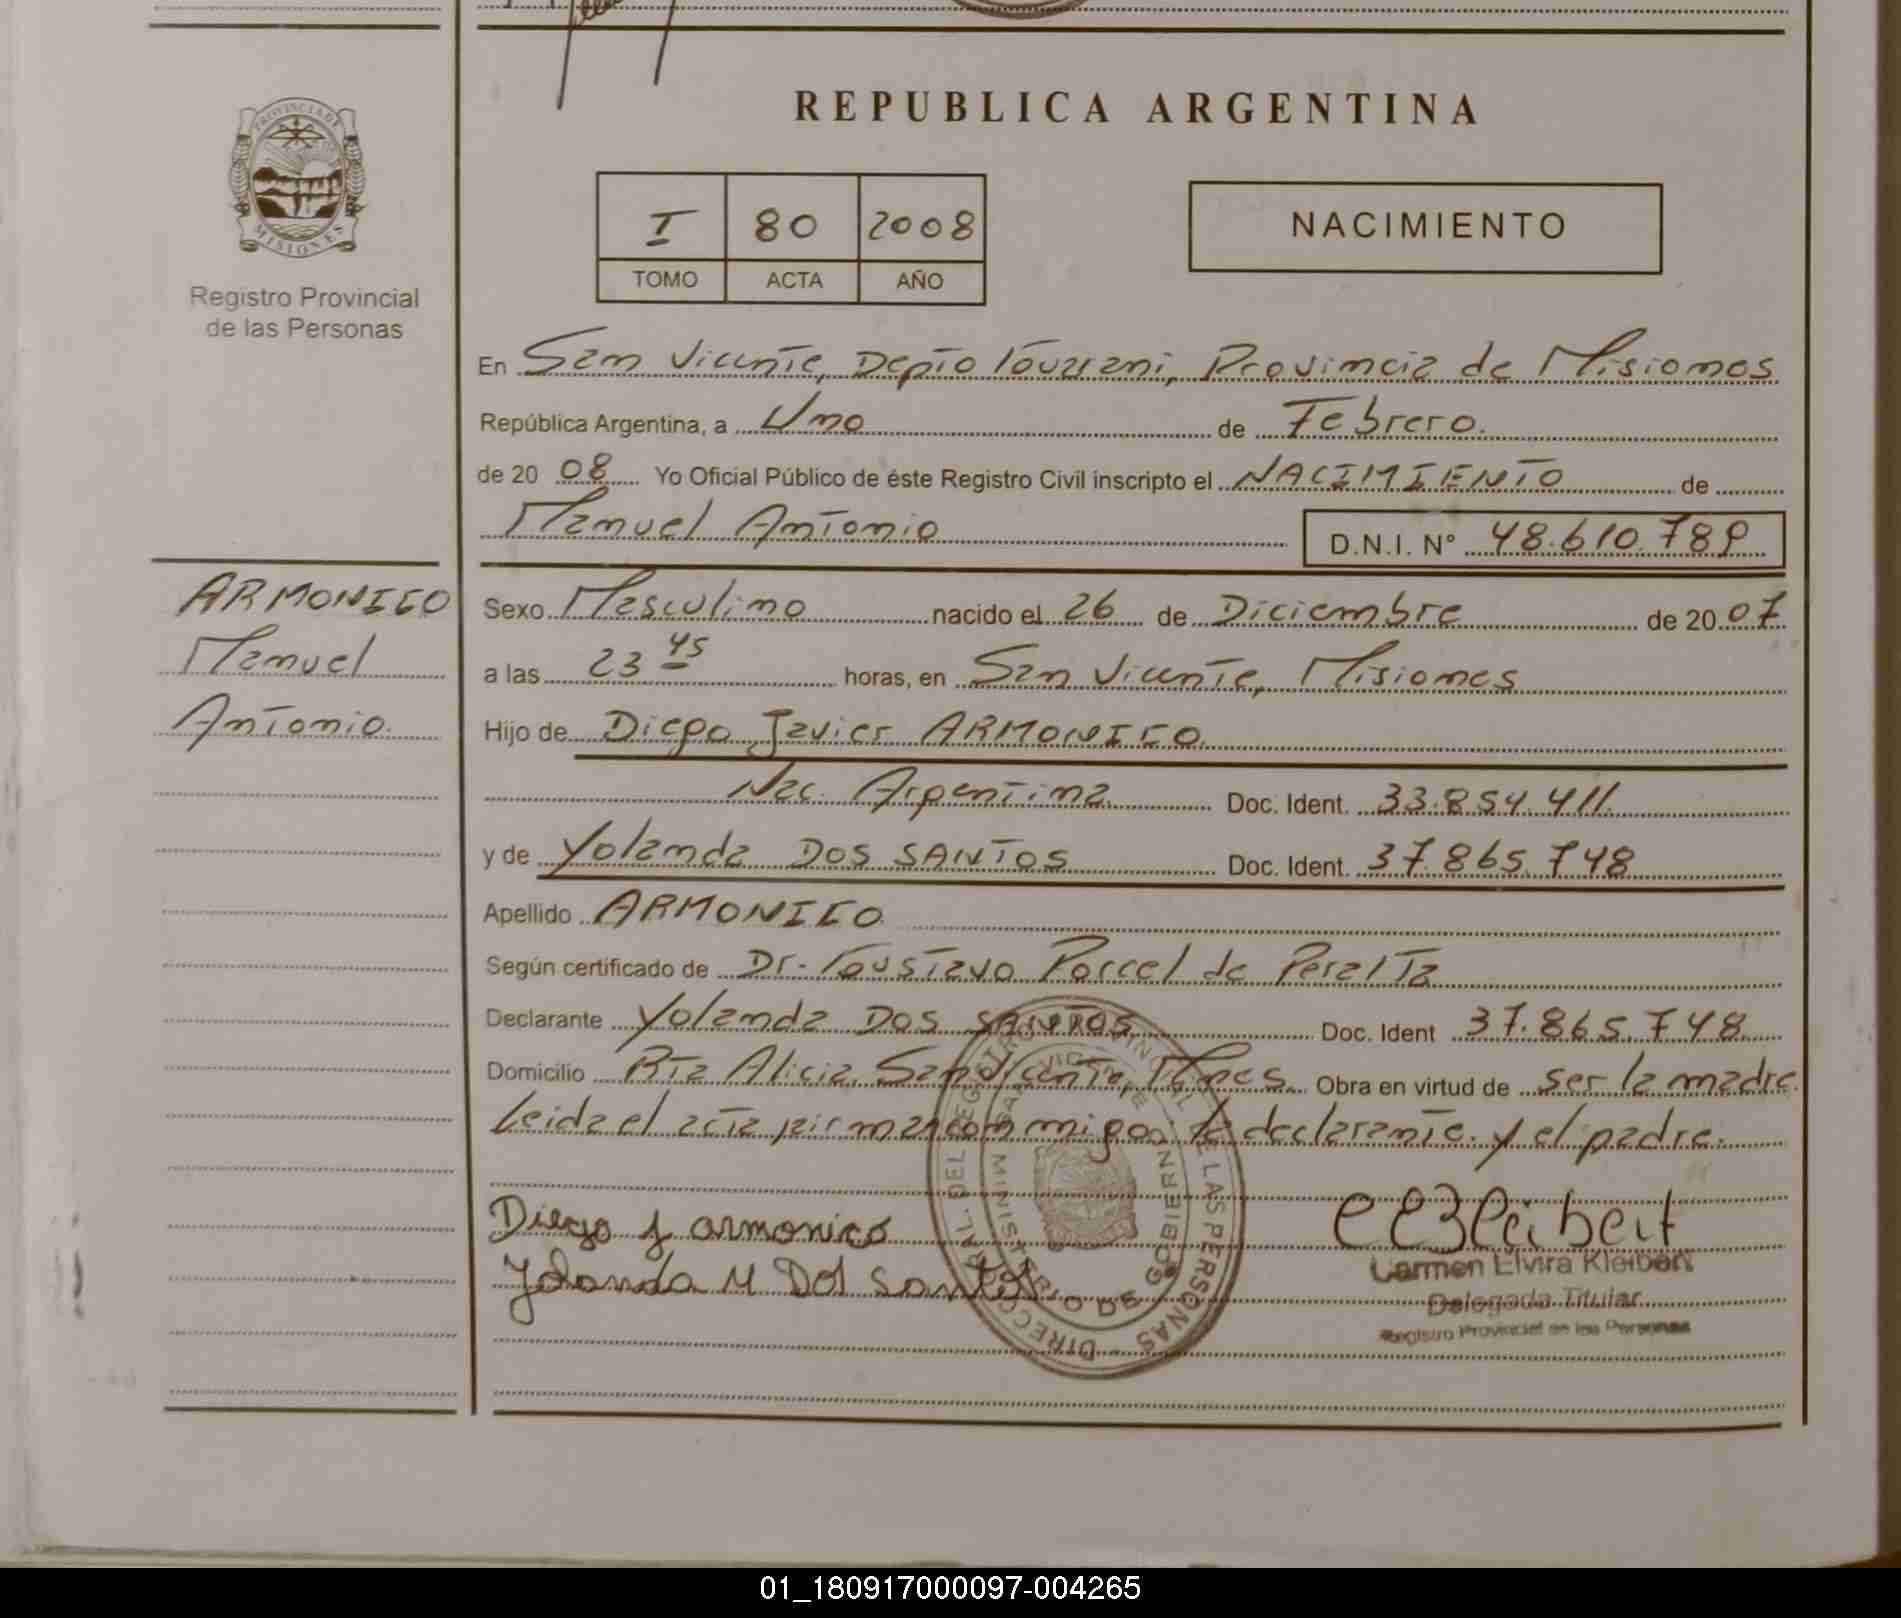 REPUBLICA ARGENTINA
PROVINCIA DE
MISIONES
Registro Provincial
de las Personas
I 80 2008
TOMO ACTA AÑO
NACIMIENTO
En San Vicente, Depto Guarani, Provincia de Misiones
República Argentina, a Uno de Febrero.
de 20 08 Yo Oficial Público de éste Registro Civil inscripto el NACIMIENTO de
Manuel Antonio D.N.I. N° 48.610.789
ARMONICO
Manuel
Antonio.
Sexo Masculino nacido el 26 de Diciembre de 20 07
a las 23 45 horas, en San Vicente, Misiones
Hijo de Diego Javier ARMONICO.
Nac. Argentina Doc. Ident. 33.854.411.
y de Yolanda DOS SANTOS Doc. Ident. 37.865.748
Apellido ARMONICO
Según certificado de Dr. Gustavo Porcel de Peralta
Declarante Yolanda DOS SANTOS Doc. Ident 37.865.748.
Domicilio Pta Alicia, San Vicente, Mnes. Obra en virtud de ser la madre.
Leida el acta firman conmigo la declarante. y el padre.
Diego J armonico
Yolanda M Dos Santos
DIRECC. GRAL. DEL REGISTRO PROVINCIAL DE LAS PERSONAS
MINISTERIO DE GOBIERNO
SAN VICENTE
Carmen Elvira Kleibert
Delegada Titular
Registro Provincial de las Personas
01_180917000097-004265